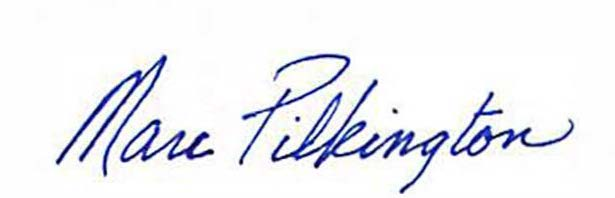 Marc Pilkington